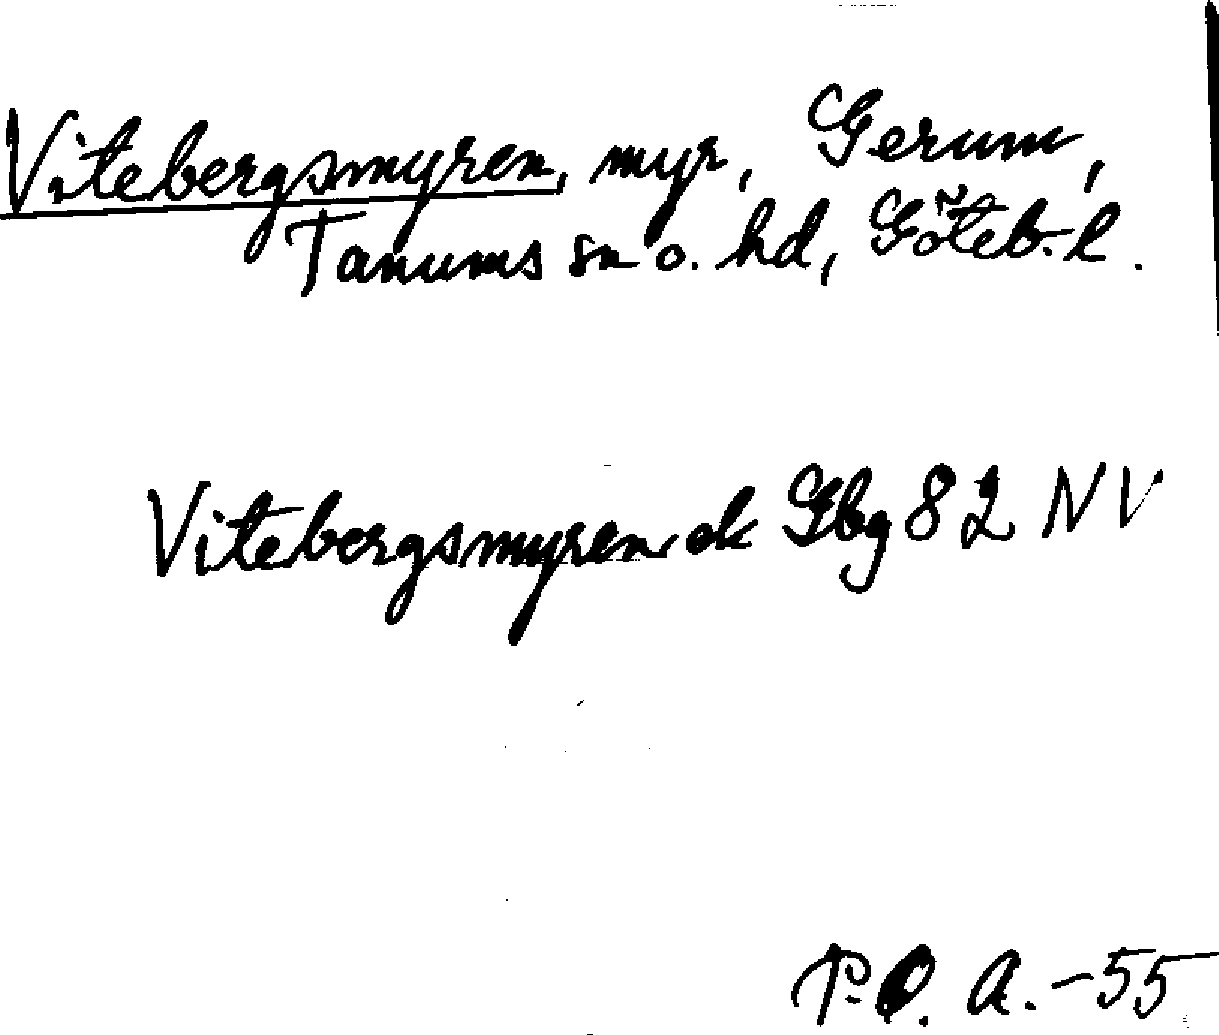 Vitebergsmyren, myr, Gerum,
Tanums sn o. hd, Göteb. l.
Vitebergsmyren ek Gbg 82 NV
P. O. A. -55